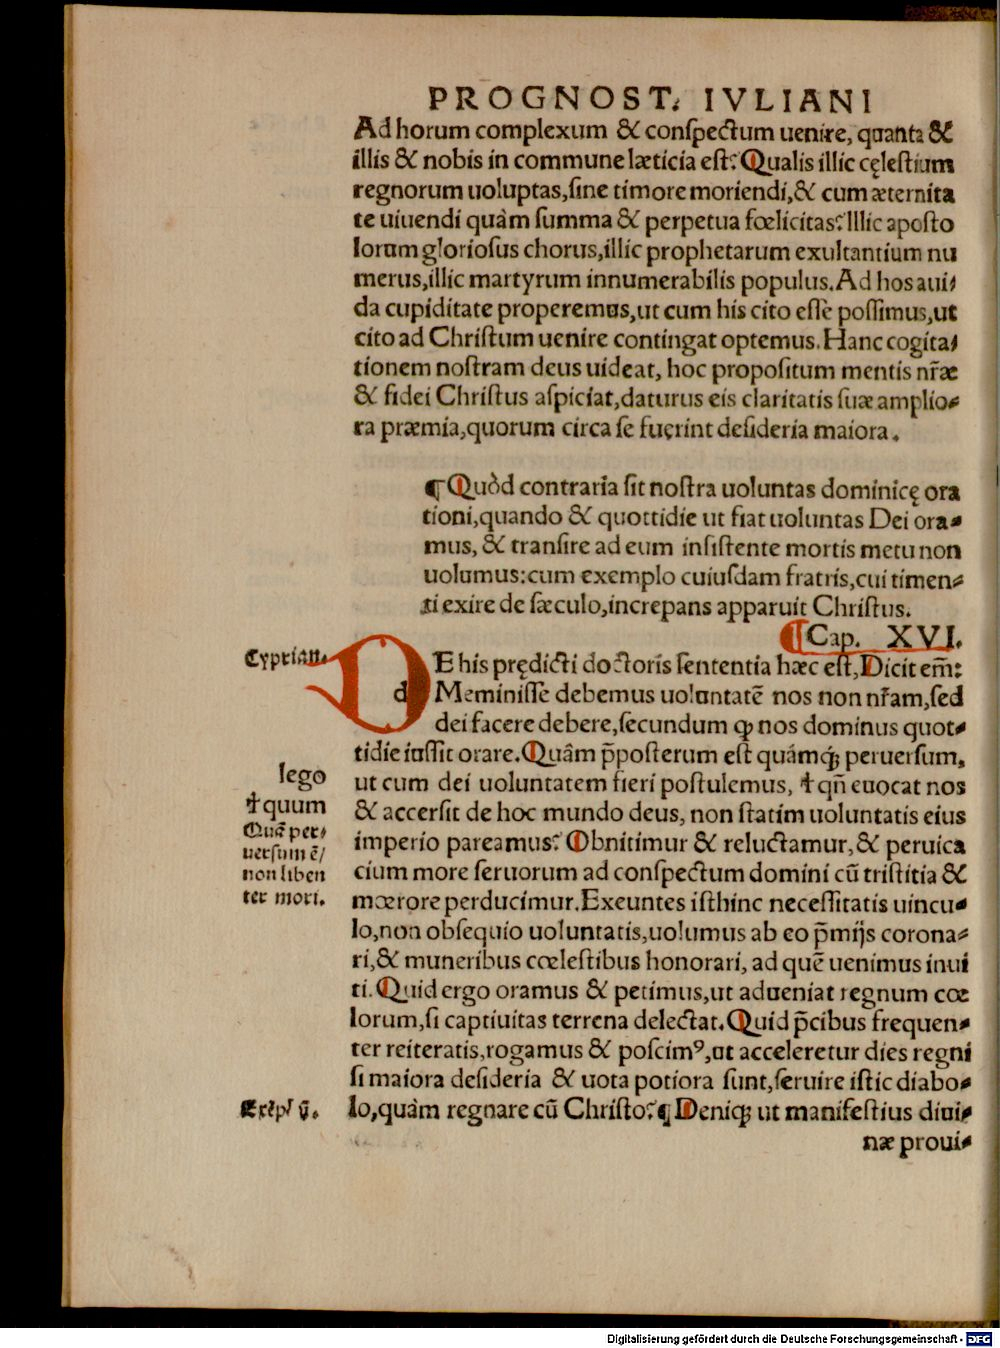 PROGNOST. IVLIANI
Ad horum complexum & conſpectum uenire, quanta &
illis & nobis in commune læticia eſt? Qualis illic cęleſtium
regnorum uoluptas,ſine timore moriendi,& cum æternita
te uiuendi quàm ſumma & perpetua fœlicitas? Illic apoſto
lorum glorioſus chorus,illic prophetarum exultantium nu
merus,illic martyrum innumerabilis populus. Ad hos aui⸗
da cupiditate properemus,ut cum his cito eſſe poſſimus,ut
cito ad Chriſtum uenire contingat optemus. Hanc cogita⸗
tionem noſtram deus uideat, hoc propoſitum mentis nr̃æ
& fidei Chriſtus aſpiciat,daturus eis claritatis ſuæ amplio⸗
ra præmia,quorum circa ſe fuerint deſideria maiora.
¶ Quòd contraria ſit noſtra uoluntas dominicę ora
tioni,quando & quottidie ut fiat uoluntas Dei ora⸗
mus, & tranſire ad eum inſiſtente mortis metu non
uolumus: cum exemplo cuiuſdam fratris,cui timen⸗
ti exire de ſæculo,increpans apparuit Chriſtus.
¶ Cap. XVI.
Cyprian.
DE his prędicti doctoris ſententia hæc eſt, Dicit em̃:
d Meminiſſe debemus uoluntatē nos non nr̃am,ſed
dei facere debere,ſecundum ꝙ nos dominus quot⸗
tidie iuſſit orare. Quâm p̄poſterum eſt quámq́; peruerſum,
ut cum dei uoluntatem fieri poſtulemus, ☨ qñ euocat nos
& accerſit de hoc mundo deus, non ſtatim uoluntatis eius
imperio pareamus? Obnitimur & reluctamur,& peruica
cium more ſeruorum ad conſpectum domini cū triſtitia &
mœrore perducimur. Exeuntes iſthinc neceſſitatis uincu⸗
lo,non obſequio uoluntatis,uolumus ab eo p̄mijs corona⸗
ri,& muneribus cœleſtibus honorari, ad quē uenimus inui
ti. Quid ergo oramus & petimus,ut adueniat regnum cœ
lorum,ſi captiuitas terrena delectat. Quid p̄cibus frequen⸗
ter reiteratis,rogamus & poſcimꝰ,ut acceleretur dies regni
ſi maiora deſideria & uota potiora ſunt,ſeruire iſtic diabo⸗
lo,quàm regnare cū Chriſto? ¶ Deniqꝫ ut manifeſtius diui⸗
næ proui⸗
lego
☨ quum
Quā per⸗
uerſum ē/
non liben
ter mori.
Digitalisierung gefördert durch die Deutsche Forschungsgemeinschaft - DFG